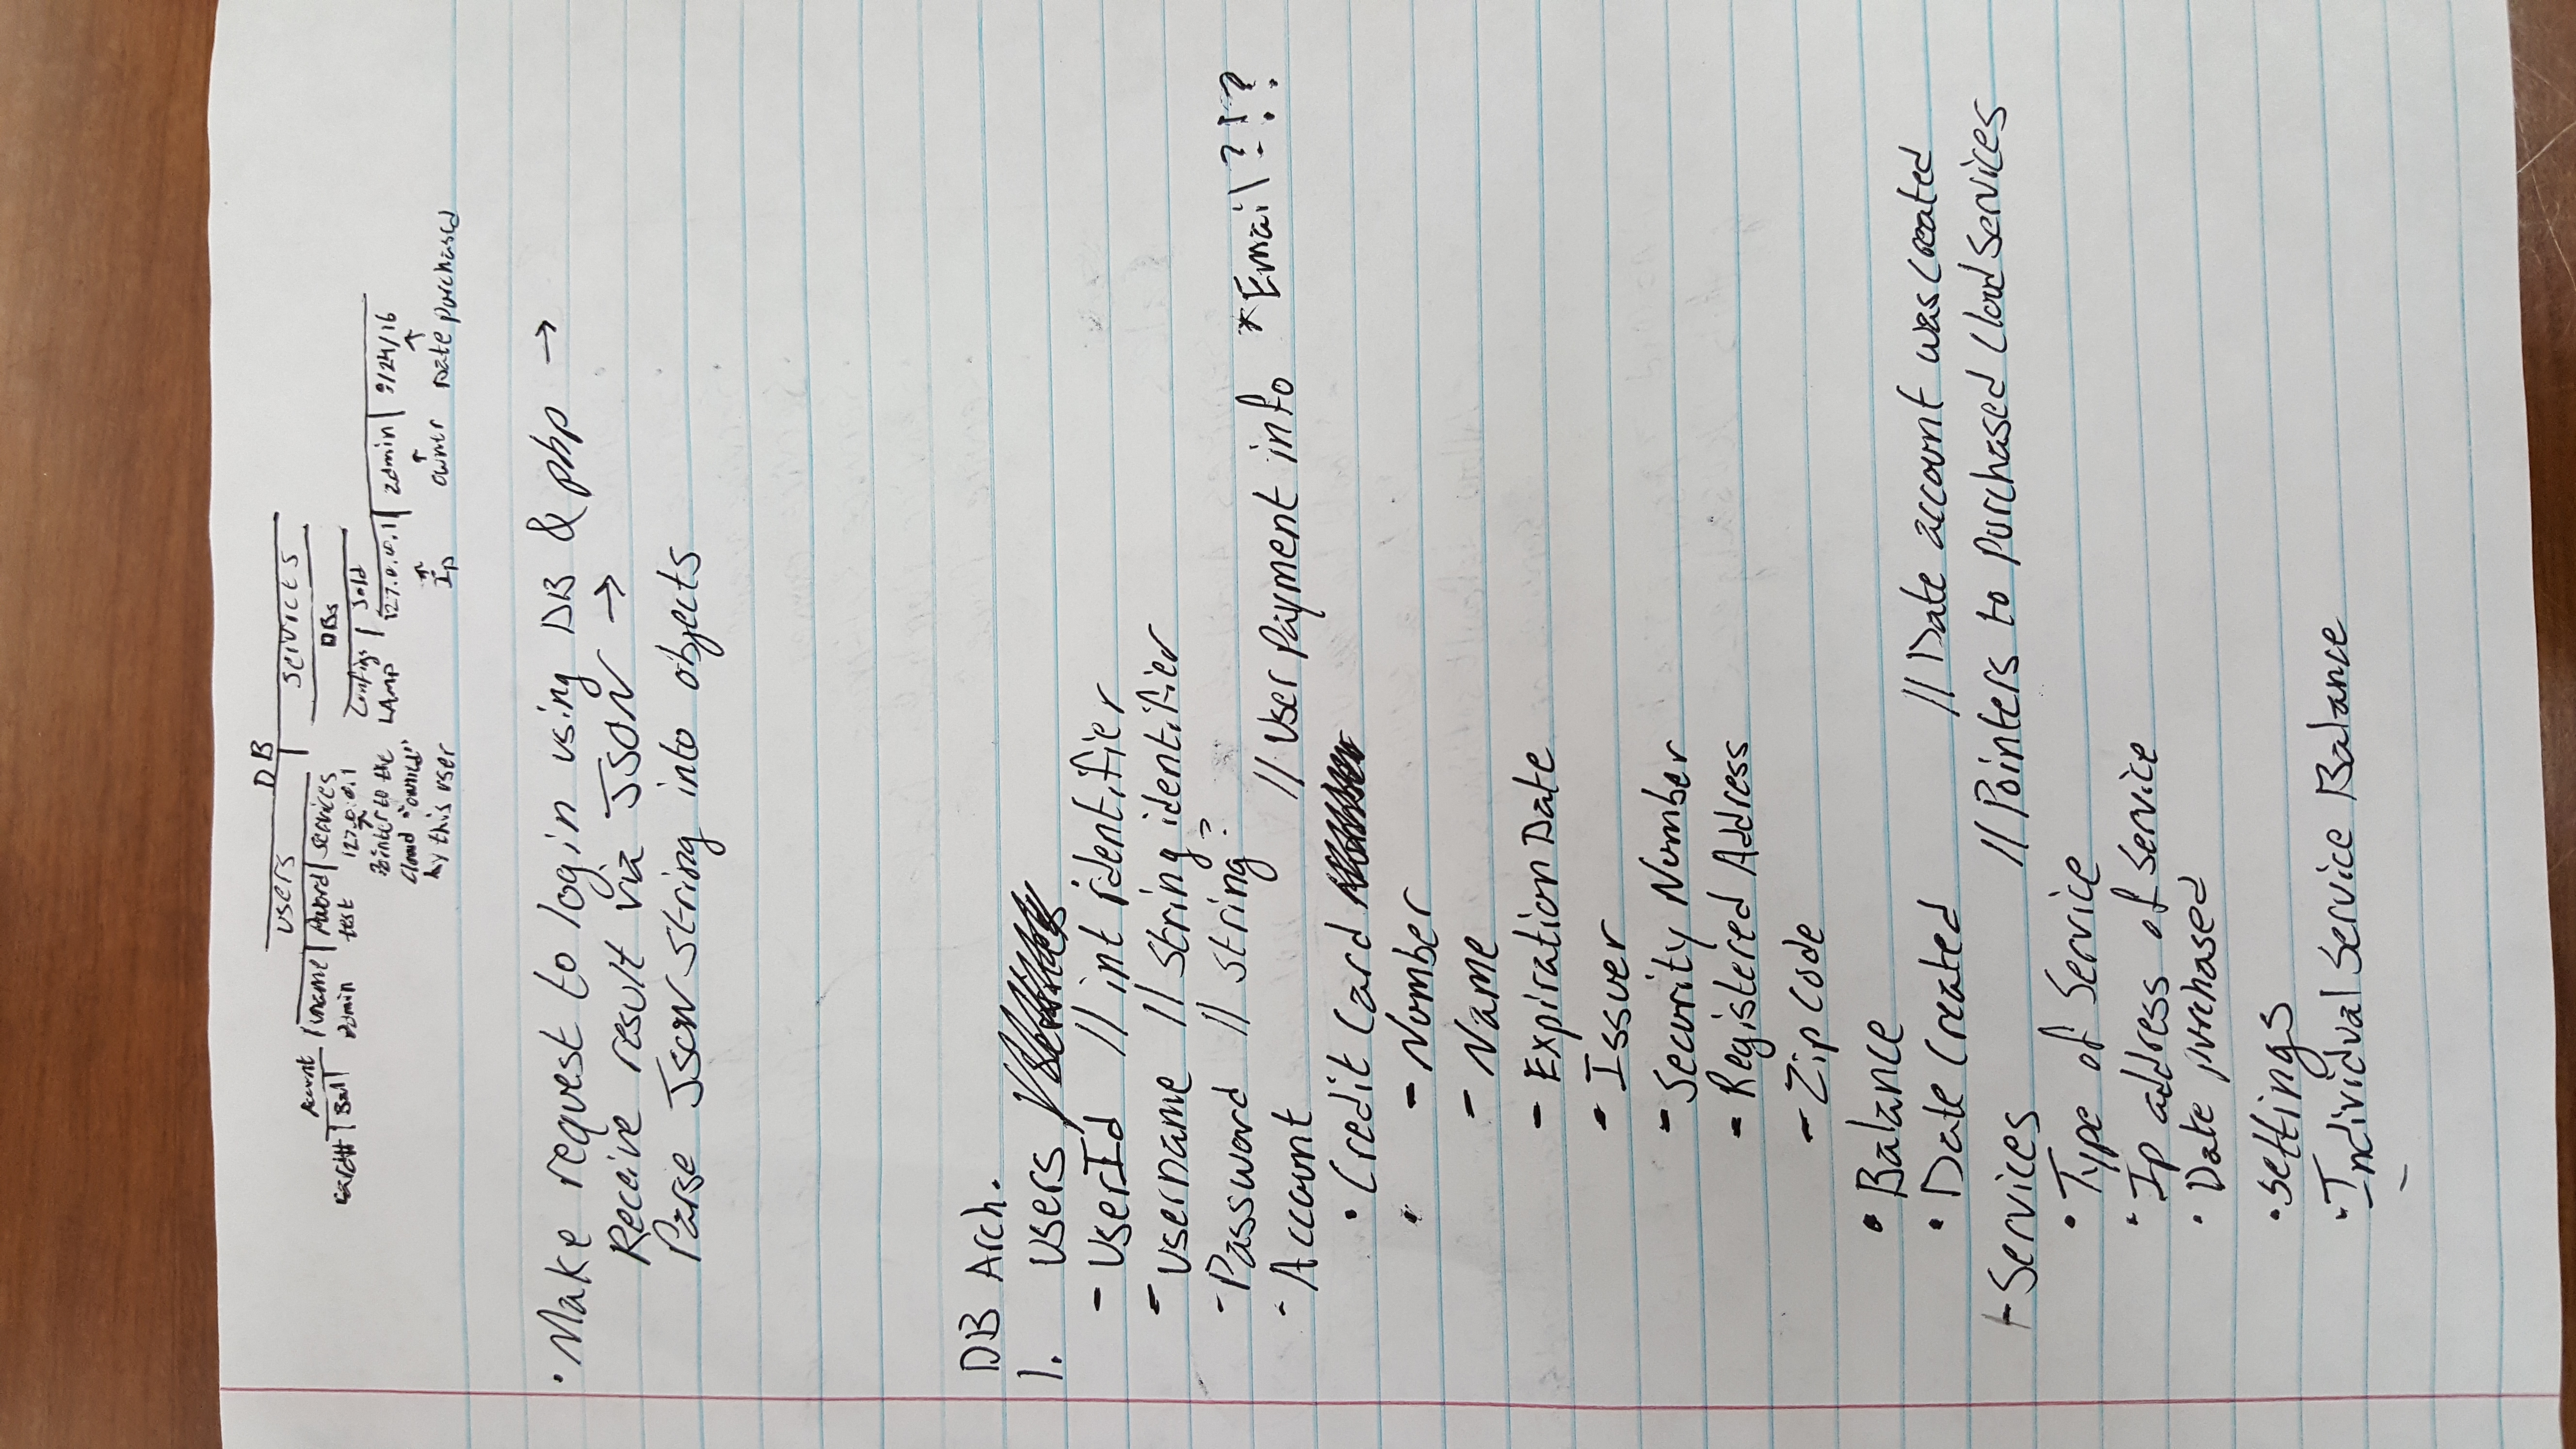 DB
Users | Services
Account | Uname | Pword | Services
DBs
Card# | Bal | admin test 127.0.0.1
Configs | Sold
Pointer to the
LAMP 127.0.0.1 | admin | 9/24/16
Cloud "owned"
by this user
Ip owner Date purchased
· Make request to login using DB & php →
Receive result via JSON →
Parse JSON String into objects
DB Arch.
1. Users
- UserId // int identifier
- Username // String identifier
- Password // String?
- Account // User Payment info *Email?!?
• Credit Card
- Number
- Name
- Expiration Date
- Issuer
- Security Number
- Registered Address
- Zip Code
• Balance
• Date Created // Date account was Created
- Services // Pointers to Purchased Cloud Services
• Type of Service
• Ip address of Service
• Date purchased
• Settings
• Individual Service Balance
-